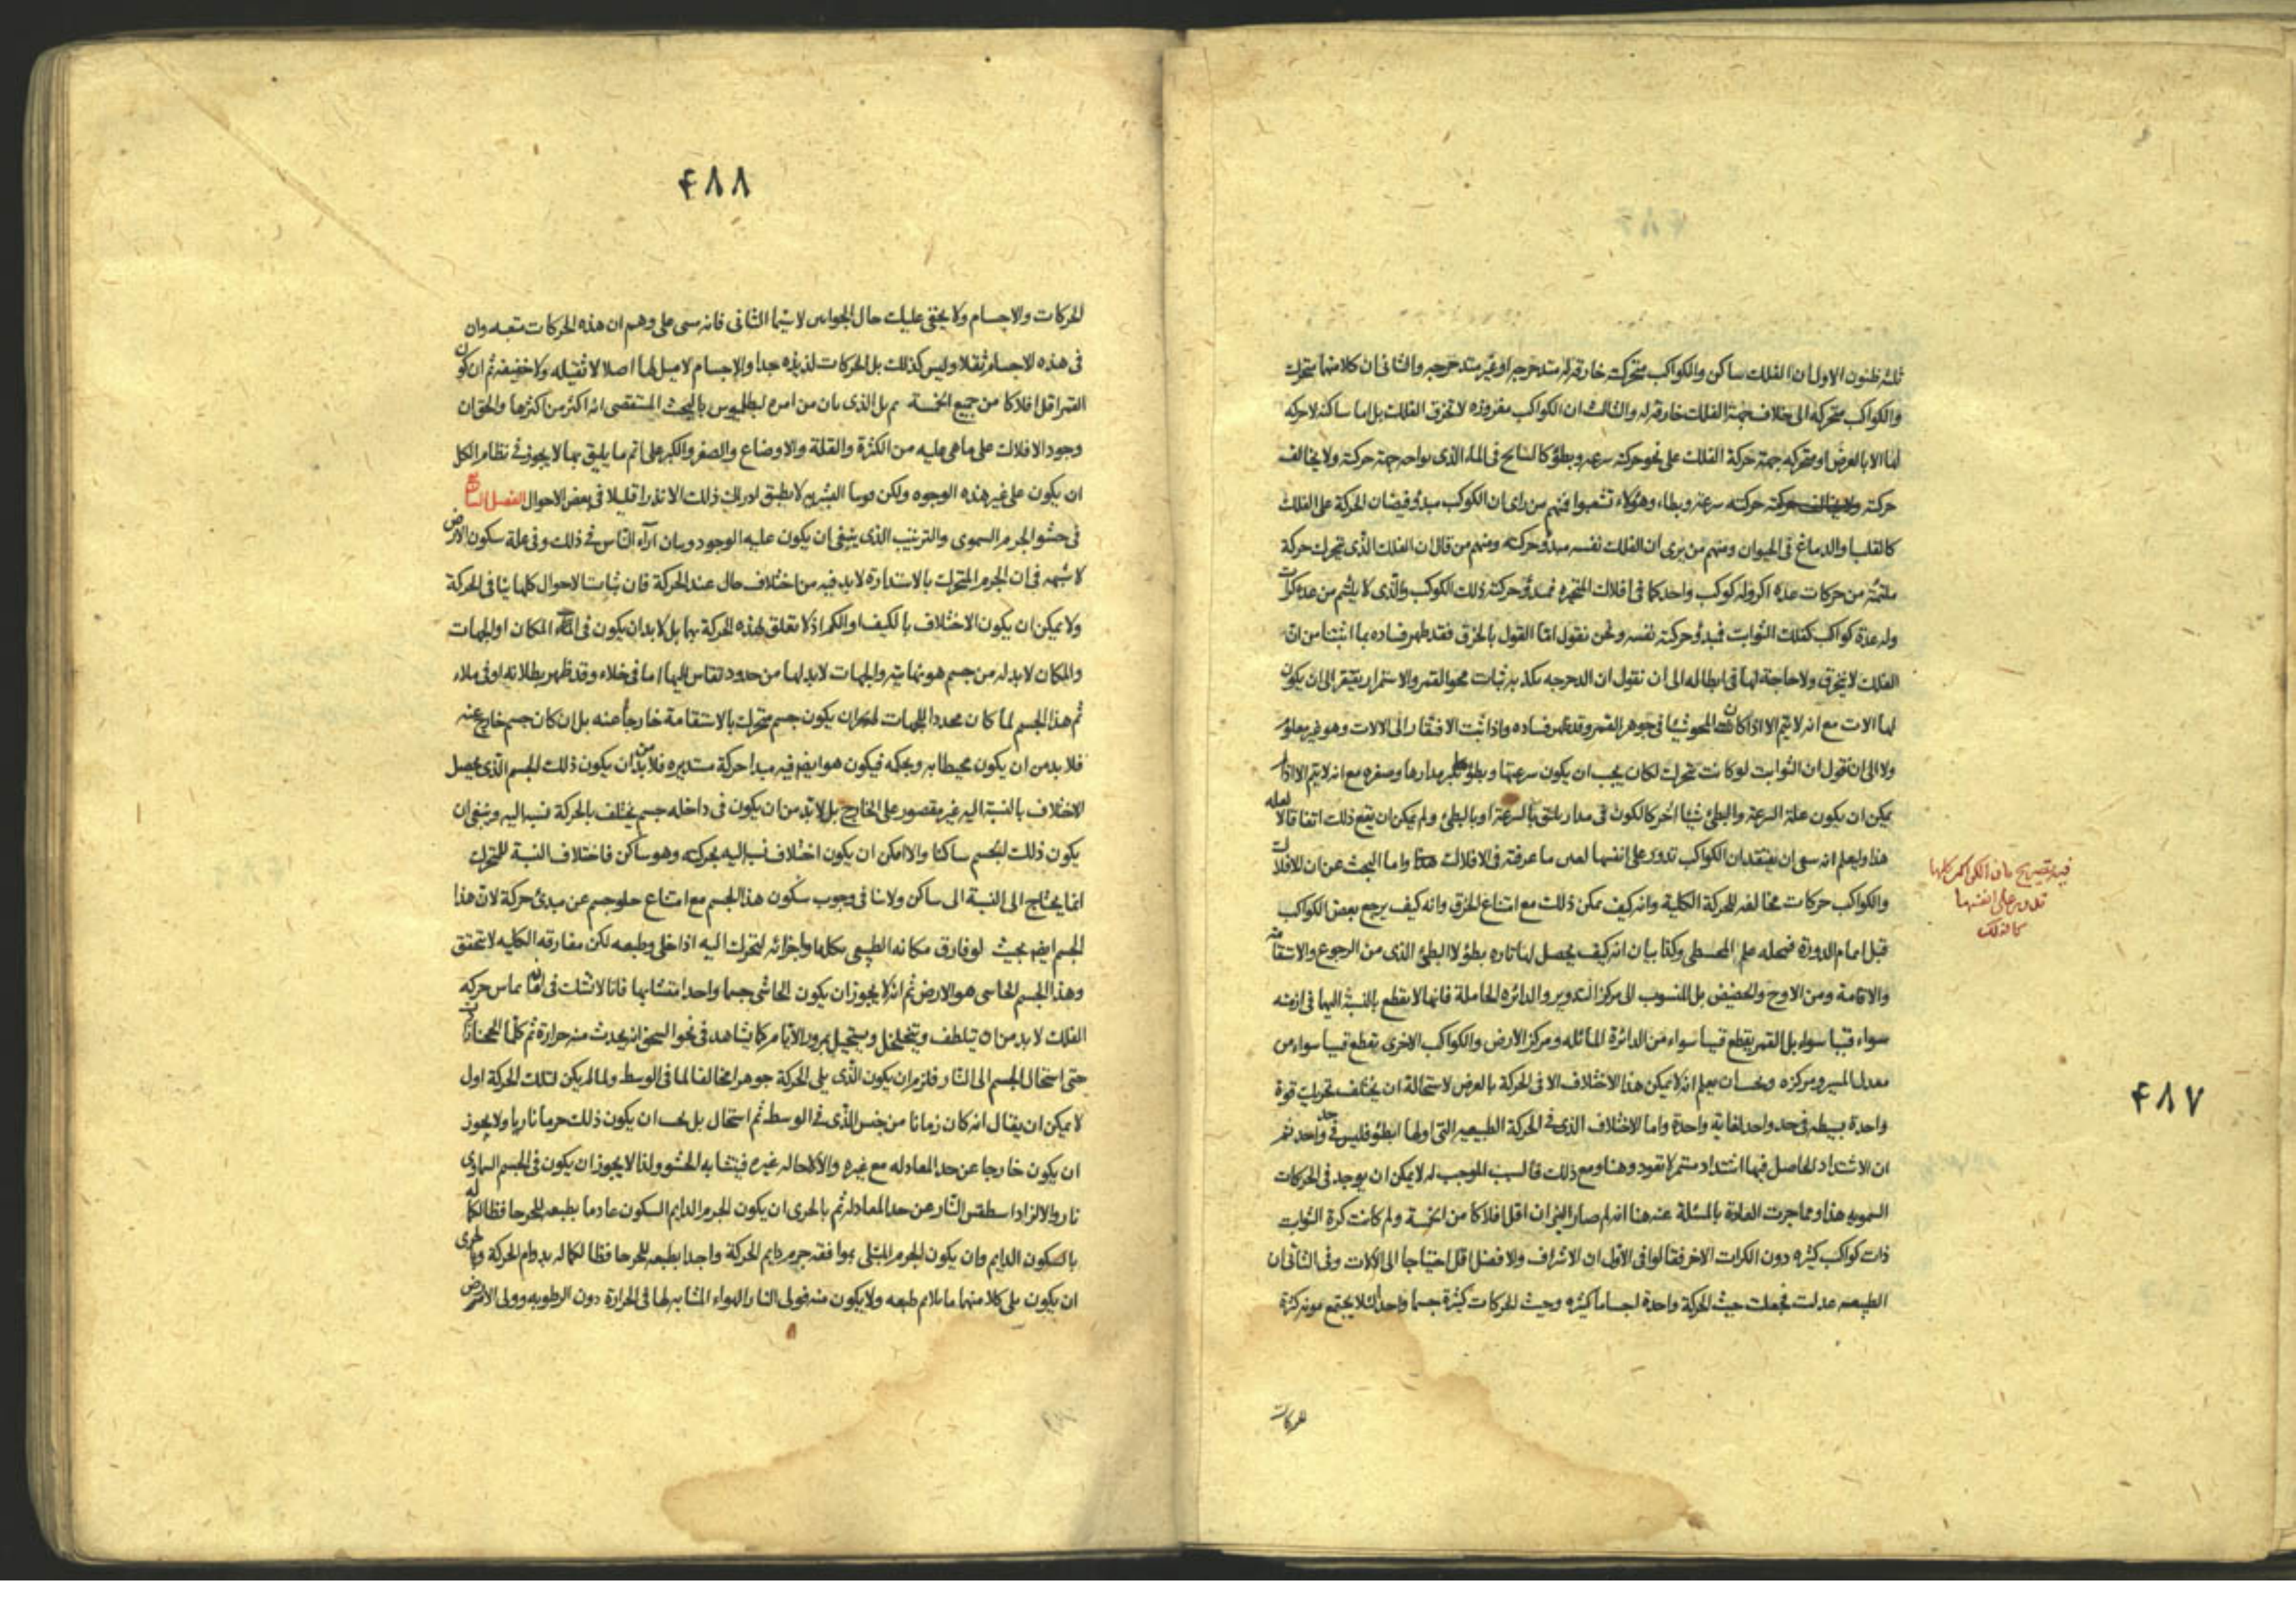 ثلثه ظنون الاول ان الفلك ساكن والكواكب متحركه خارقه له متدحرجه او غير متدحرجه والثانى ان كلا منهما متحرك
والكواكب متحركه الى خلاف جهة الفلك خارقه له والثالث ان الكواكب مغروزه لا تخرق الفلك بل اما ساكنه لا حركه
لها الا بالعرض او متحركه جهة حركة الفلك على نحو حركته سرعه وبطؤ كالسابح فى الماء الذى نواحه جهة حركته ولا يخالف
حركته حركته سرعة وبطاء وهؤلاء تشعبوا فمنهم من راى ان الكوكب مبدؤ فيضان الحركة على الفلك
كالقلب والدماغ فى الحيوان ومنهم من يرى ان الفلك نفسه مبدؤ حركته ومنهم من قال ان الفلك الذى تتحرك حركة
ملتئمة من حركات عده اكر وله كوكب واحد كما فى افلاك المتحيره فمبدؤ حركته ذلك الكوكب والذى لا يلتئم من عده كرات
وله عدة كواكب كفلك الثوابت فمبدؤ حركته نفسه ونحن نقول اما القول بالخرق فقد ظهر فساده بما اثبتنا من ان
الفلك لا ينخرق ولا حاجة لها فى ابطاله الى ان نقول ان الدحرجه يكذبه ثبات محو القمر والاستمرار يفتقر الى ان يكون
لها الات مع انه لا يتم الا اذا كان المحو شيئا فى جوهر القمر وقد ظهر فساده واذا ثبت الافتقار الى الالات وهو غير معلوم
ولا الى ان نقول ان الثوابت لو كانت تتحرك لكان يجب ان يكون سرعتها وبطؤ لكبر مدارها وصغره مع انه لا يتم الا اذا لم
يمكن ان يكون علة السرعة والبطئ شيئا اخر كالكون فى مدار يلتق بالسرعة او بالبطئ ولم يمكن ان يقع ذلك اتفاقا لا لعله
هذا وليعلم انه ينبغى ان يعتقد ان الكواكب تدور على انفسها لعين ما عرفته فى الافلاك هذا واما البحث عن ان للافلاك
والكواكب حركات مخالفه للحركة الكلية وانه كيف يمكن ذلك مع امتناع الخرق وانه كيف يرجع بعض الكواكب
قبل اتمام الدورة فمحله علم المجسطى وكذا بيان انه كيف يحصل لها تاره بطؤ لا البطئ الذى من الرجوع والاستقامه
والاقامة ومن الاوج والحضيض بل المنسوب الى مركز التدوير والدائره الحاملة فانها لا يقطع بالنسبة اليها فى ازمنه
سواء قسيا سواء بل القمر يقطع قسيا سواء من الدائرة المائله ومركز الارض والكواكب الاخرى يقطع قسيا سواء من
معدل المسير ومركزه ويجب ان يعلم انه لا يمكن هذا الاختلاف الا فى الحركة بالعرض لاستحالة ان يختلف تحريك قوة
واحدة بسيطه فى حد واحد لغاية واحدة واما الاختلاف الذى فى الحركة الطبيعيه التى اولها ابطئو فليس فى حد واحد نعم
ان الاشتداد الحاصل فيها اشتداد مستمر لا تعود وهنا ومع ذلك فالسبب الموجب له لا يمكن ان يوجد فى الحركات
السمويه هذا ومما جرت العادة بالمسئلة عنه هنا انه لم صار النيران اقل افلاكا من الخمسة ولم كانت كرة الثوابت
ذات كواكب كثيره دون الكرات الاخر فقالوا فى الاول ان الاشراف والافضل اقل احتياجا الى الالات وفى الثانى ان
الطبيعه عدلت فجعلت حيث الحركة واحدة اجساما كثيره وحيث الحركات كثيرة جسما واحدا لئلا يجتمع مونه كثرة
للحركات
فيه تصريح بان الكواكب كلها
تدور على انفسها
كالفلك
۴۸۷
۴۸۸
الحركات والاجسام ولا يخفى عليك حال الجوابين لا سيما الثانى فانه مبنى على وهم ان هذه الحركات متعبه وان
فى هذه الاجسام ثقلا وليس كذلك بل الحركات لذيذه جدا والاجسام لا ميل لها اصلا لا ثقيله ولا خفيفه ثم ان كون
القمر اقل افلاكا من جميع الخمسة بل الذى بان من امره لبطليموس بالبحث المستقصى انه اكثر من اكثرها والحق ان
وجود الافلاك على ما هى عليه من الكثرة والقلة والاوضاع والصغر والكبر على اتم ما يليق بها لا يجوز فى نظام الكل
ان يكون على غير هذه الوجوه ولكن قوتنا البشريه لا يطيق ادراك ذلك الا نذرا قليلا فى بعض الاحوال الفصل السابع
فى حشو الجرم السموى والترتيب الذى ينبغى ان يكون عليه الوجود وبيان آراء الناس فى ذلك وفى علة سكون الارض
لا شبهه فى ان الجرم المتحرك بالاستدارة لا بد فيه من اختلاف حال عند الحركة فان ثبات الاحوال كلها ينافى الحركة
ولا يمكن ان يكون الاختلاف بالكيف او الكم اذ لا تعلق لهذه الحركة بها بل لا بد ان يكون فى المكان او الجهات
والمكان لا بد له من جسم هو نهايته والجهات لا بد لها من حدود تقاس اليها اما فى خلاء وقد ظهر بطلانه او فى ملاء
ثم هذا الجسم لما كان محددا للجهات لم يجز ان يكون جسم متحرك بالاستقامة خارجا عنه بل ان كان جسم خارج عنه
فلا بد من ان يكون محيطا به ويحركه فيكون هو ايضا فيه مبدا حركة مستديره فلا بد من ان يكون ذلك الجسم الذى يحصل
الاختلاف بالنسبة اليه غير مقصور على الخارج بل لا بد من ان يكون فى داخله جسم يختلف بالحركة نسبه اليه وينبغى ان
يكون ذلك الجسم ساكنا والا امكن ان يكون اختلاف نسبه اليه بحركته وهو ساكن فاختلاف النسبة للمتحرك
انما يحتاج الى النسبة الى ساكن ولا ينافى وجوب سكون هذا الجسم مع امتناع خلو جسم عن مبدئ حركة لان هذا
الجسم ايضا بحيث لو فارق مكانه الطبيعى بكله او اجزائه لتحرك اليه اذا خلى وطبعه لكن مفارقه الكليه لا تتحقق
وهذا الجسم الحاشى هو الارض ثم انه لا يجوز ان يكون الحاشى جسما واحدا متشابها فانا لا نشك فى ان ما يماس حركه
الفلك لا بد من ان يتلطف ويتخلخل ويستحيل بمرور الايام كما يشاهد فى نحو السحق انه يحدث منه حرارة ثم
حتى استحال الجسم الى النار فلزم ان يكون الذى يلى الحركة جوهرا مخالفا لما فى الوسط ولما لم يكن لتلك الحركة اول
لا يمكن ان يقال انه كان زمانا من جنس الذى فى الوسط ثم استحال بل يجب ان يكون ذلك جرما ناريا ولا يجوز
ان يكون خارجا عن حد المعادله مع غيره والا لاحاله غيره فيتشابه الحشو ولذا لا يجوز ان يكون فى الجسم السماوى
نار والا لزاد اسطقس النار عن حد المعادله ثم بالحرى ان يكون للجرم الدايم السكون عادما بطبعه للحر حافظا لكماله
بالسكون الدايم وان يكون الجرم المبتلى بموافقه جرم دايم الحركة واجدا بطبعه للحر حافظا لكماله بدوام الحركة وبالحرى
ان يكون يلى كلا منهما ما يلايم طبعه ولا يكون منه فولى النار الهواء المشابه لها فى الحرارة دون الرطوبه وولى الارض